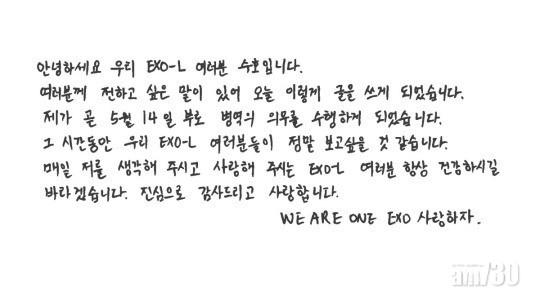 안녕하세요 우리 EXO-L 여러분 수호입니다.
여러분께 전하고 싶은 말이 있어 오늘 이렇게 글을 쓰게 되었습니다.
제가 곧 5월 14일 부로 병역의 의무를 수행하게 되었습니다.
그 시간동안 우리 EXO-L 여러분들이 정말 보고싶을 것 같습니다.
매일 저를 생각해 주시고 사랑해 주시는 EXO-L 여러분 항상 건강하시길
바라겠습니다. 진심으로 감사드리고 사랑합니다.
WE ARE ONE EXO 사랑하자.
am730